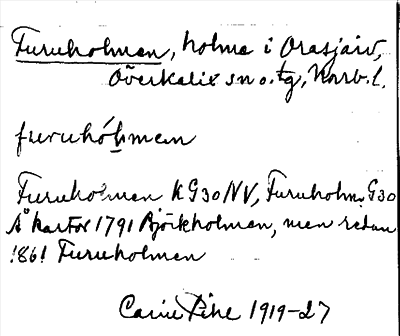 Furuholmen, holme i Orasjärv,
Överkalix sn o. tg, Norrb. l.
furuhólmen
Furuholmen KG30NV, Furuholm. G30
Å kartor 1791 Björkholmen, men redan
1861 Furuholmen
Carin Pihl 1919-27